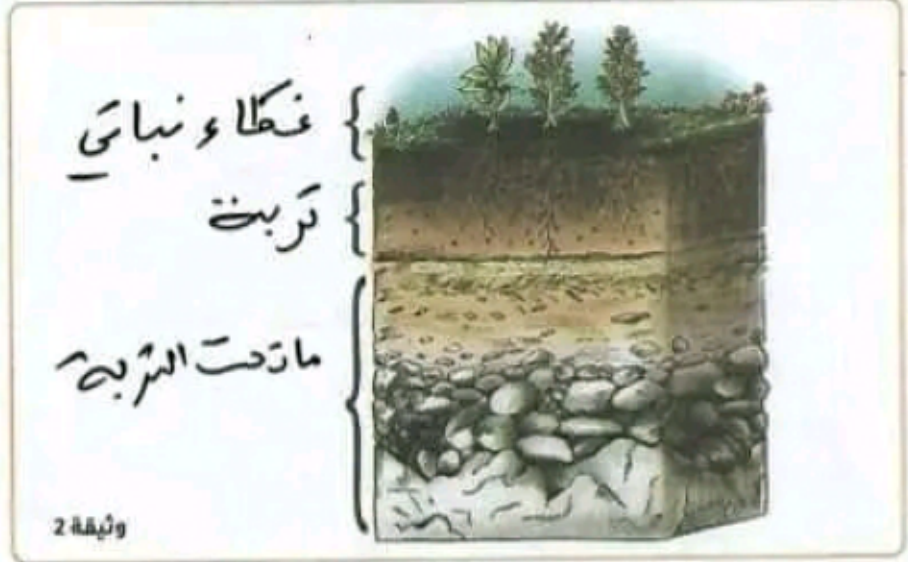 غطاء نباتي
تربة
ما تحت التربة
وثيقة 2